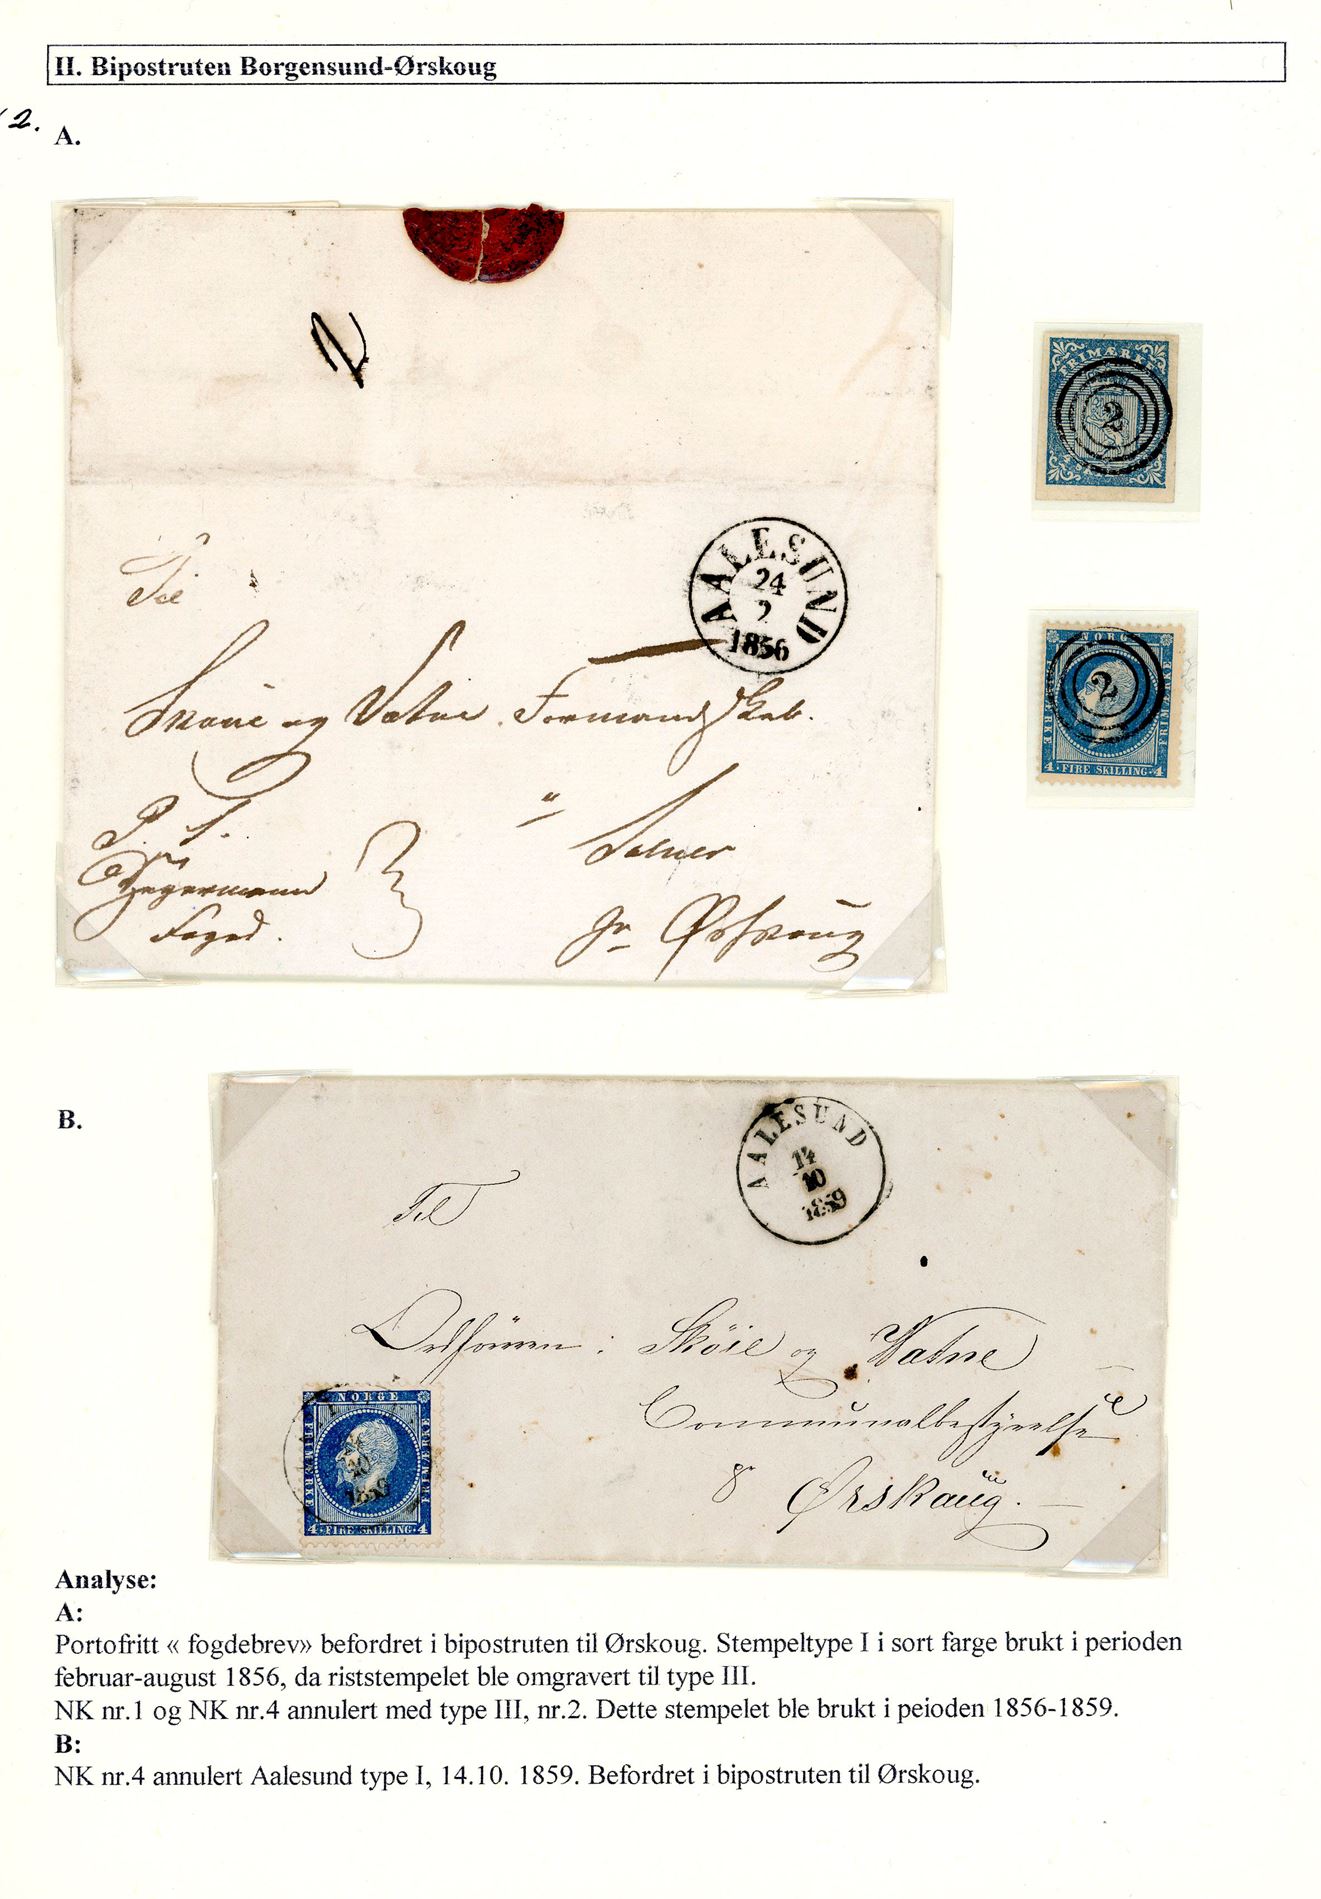 II. Bipostruten Borgensund-Ørskoug
2.
A.
2
AALESUND
24
2
1856
Til
Skoue og Vatne Formandskab.
P. S.
Hegermann
Foged.
3
"
Solnør
pr Ørskoug
FRIMÆRKE
2
NORGE
FRIMÆRKE
FRIMÆRKE
2
4 · FIRE SKILLING · 4
B.
AALESUND
14
10
1859
Til
Ordføreren i Sköie og Watne
Communalbestyrelse
pr Ørskoug.
NORGE
FRIMÆRKE
FRIMÆRKE
14
10
1859
4 · FIRE SKILLING · 4
Analyse:
A:
Portofritt « fogdebrev» befordret i bipostruten til Ørskoug. Stempeltype I i sort farge brukt i perioden
februar-august 1856, da riststempelet ble omgravert til type III.
NK nr.1 og NK nr.4 annulert med type III, nr.2. Dette stempelet ble brukt i peioden 1856-1859.
B:
NK nr.4 annulert Aalesund type I, 14.10. 1859. Befordret i bipostruten til Ørskoug.